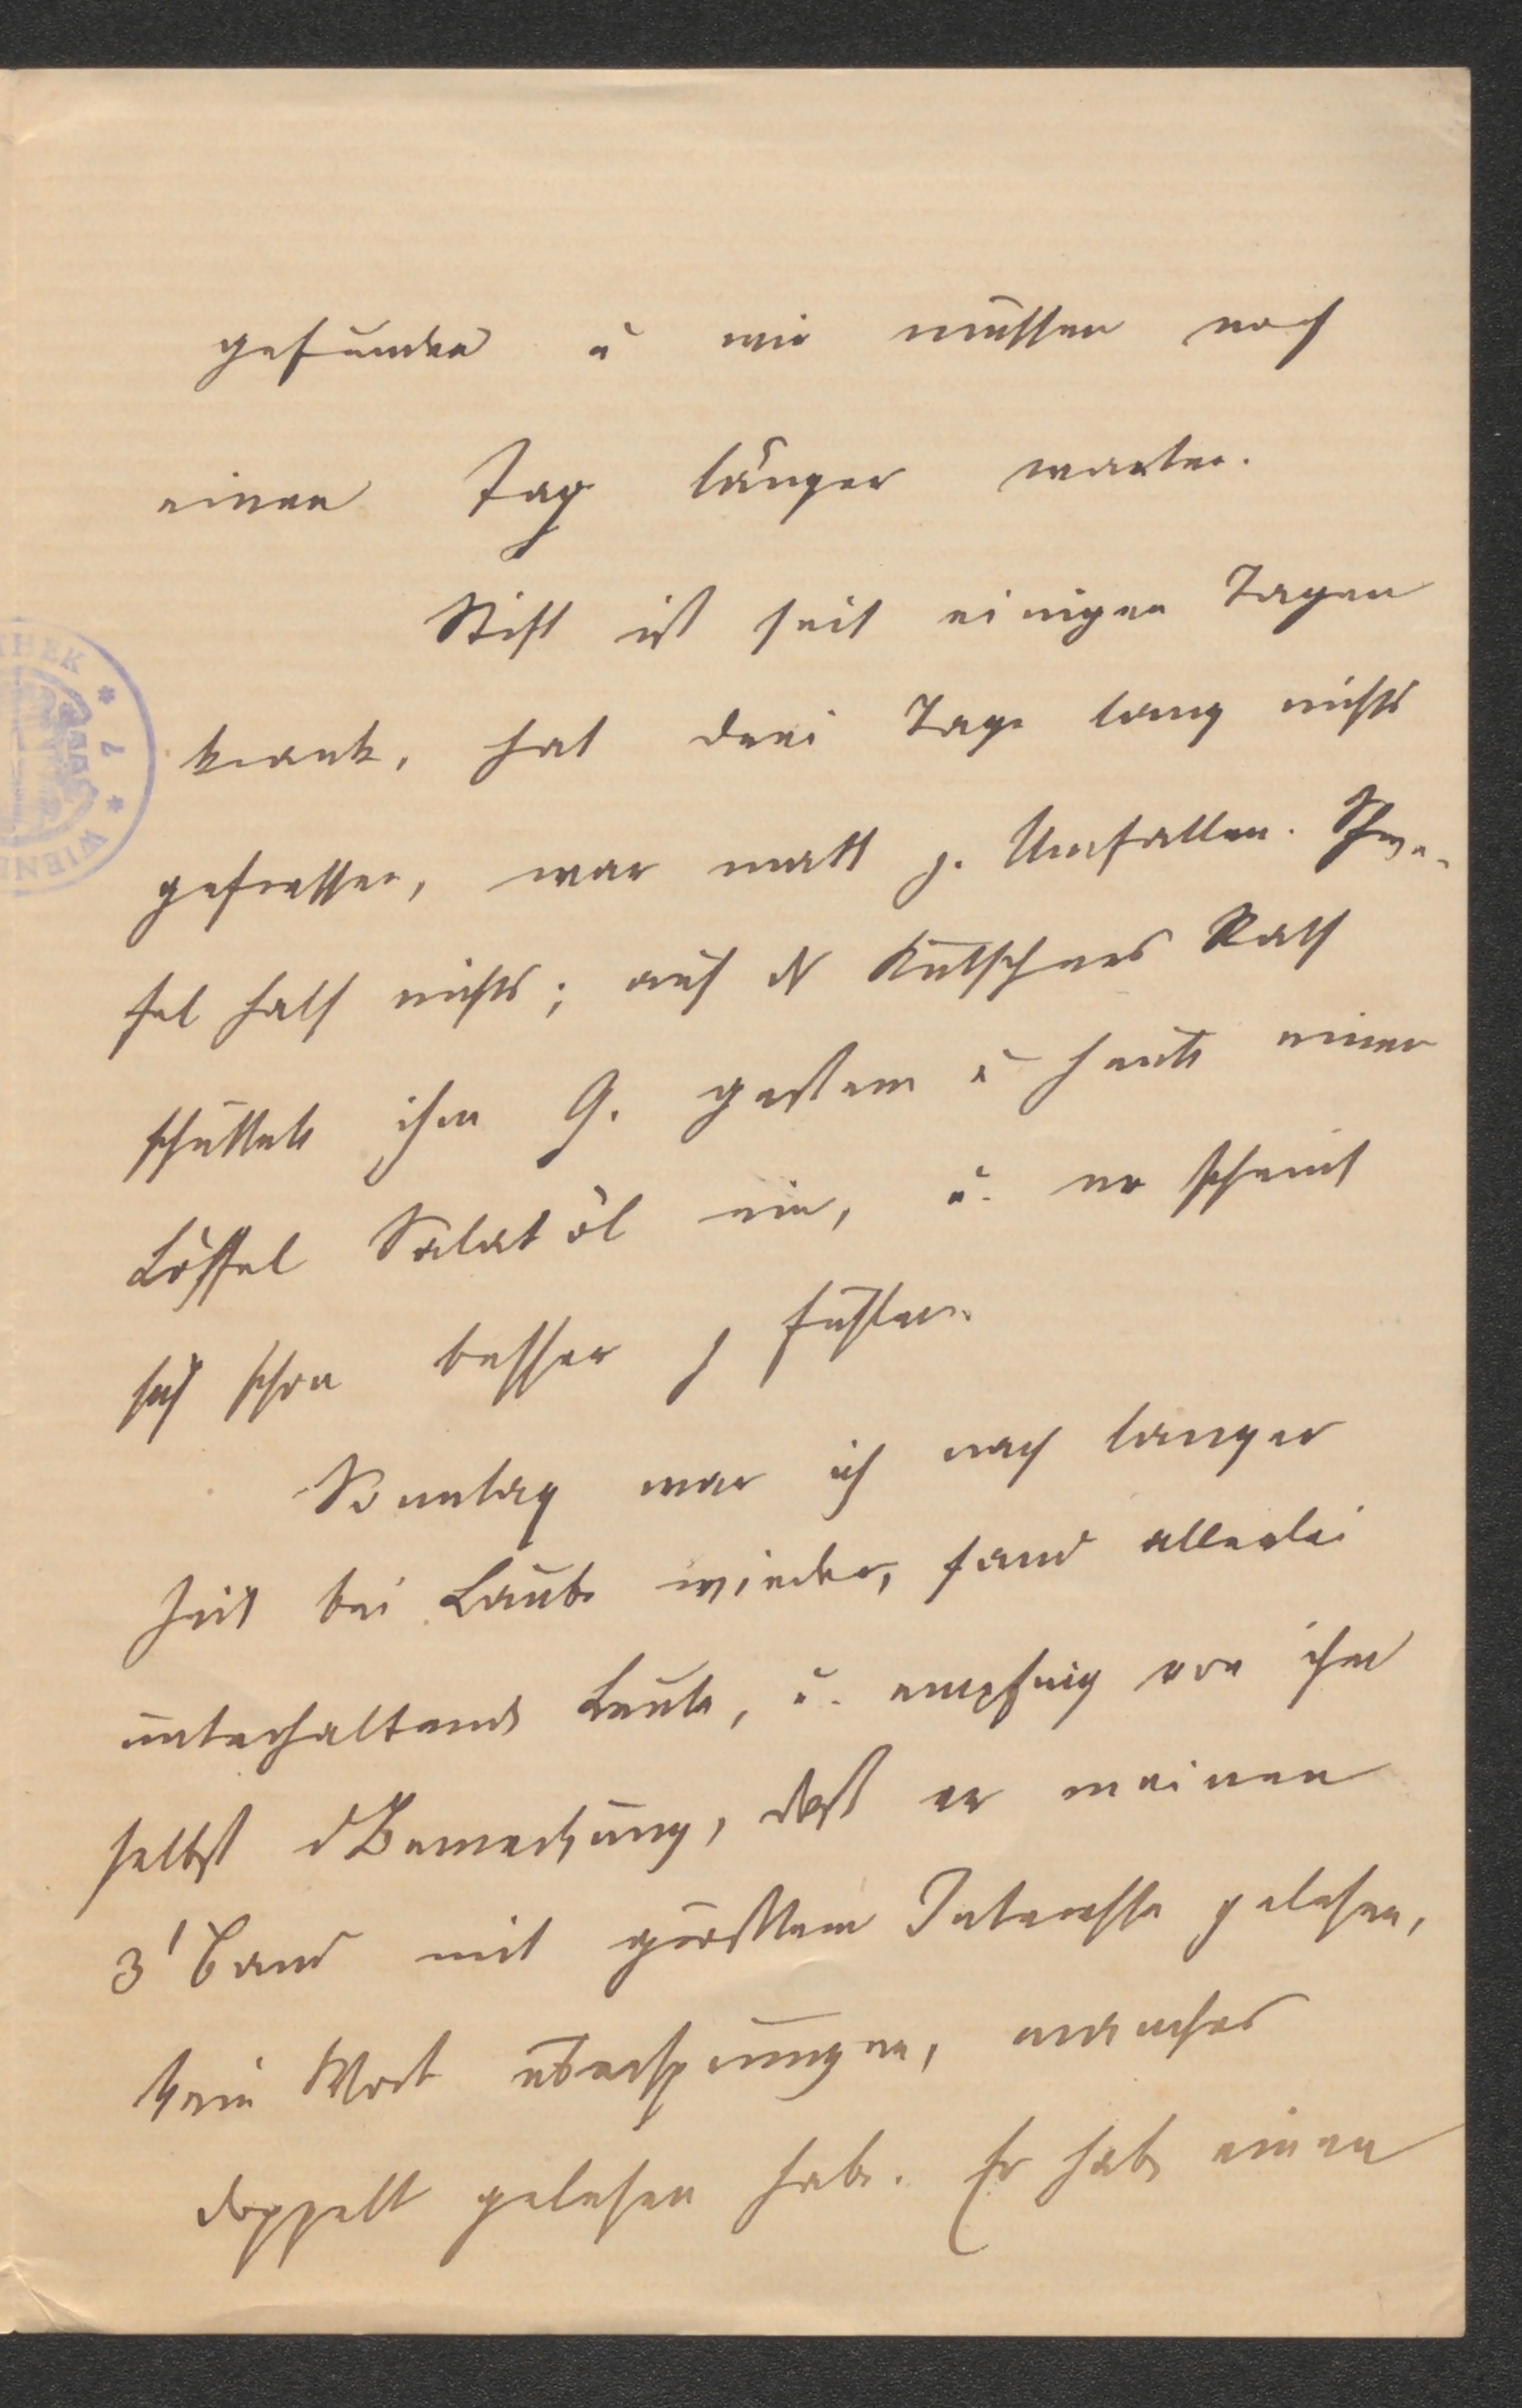 gefunden u wir müssen noch
einen Tag länger warten.
Stift ist seit einigen Tagen
krank, hat drei Tage lang nichts
gefressen, war matt z. Umfallen. Schwe-
fel half nichts; auf d Kutschers Rath
schüttete ihm G. gestern u heute einen
Löffel Salatöl ein, u. er scheint
sich schon besser z fühlen.
Sonntag war ich nach langer
Zeit bei Laube wieder, fand allerlei
unterhaltende Leute, u. empfing von ihm
selbst d Bemerkung, daß er meinen
3' Band mit größtem Interesse gelesen,
kein Wort übersprungen, manches
doppelt gelesen habe. Er habe einen
THEK * 7 * WIENE